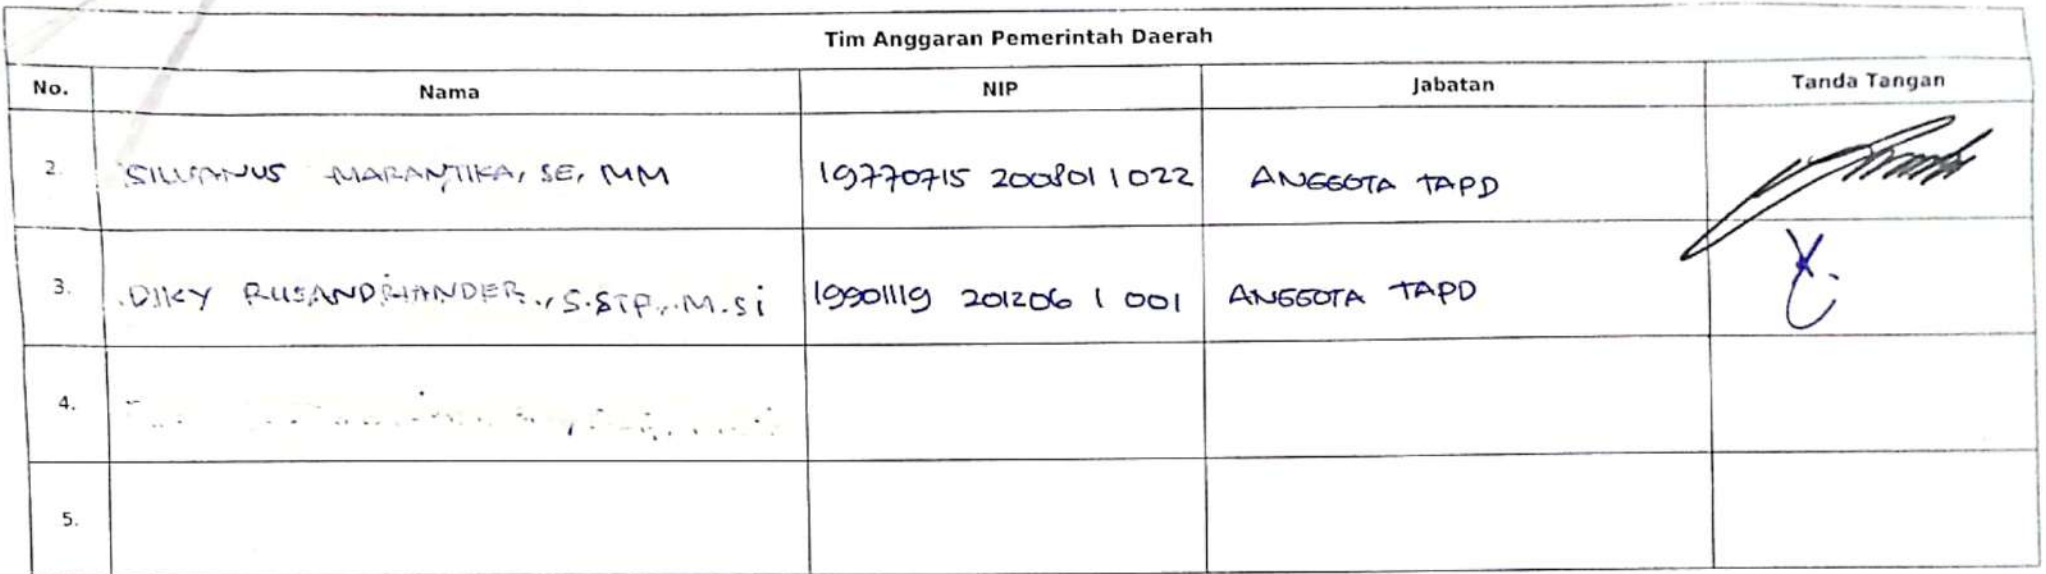 Tim Anggaran Pemerintah Daerah
No. Nama NIP Jabatan Tanda Tangan
2. SILVANUS MARANTIKA, SE, MM 19770715 200801 1 022 ANGGOTA TAPD
3. DIKY RUSANDRIANDER., S.STP., M.Si 19901119 201206 1 001 ANGGOTA TAPD
4.
5.